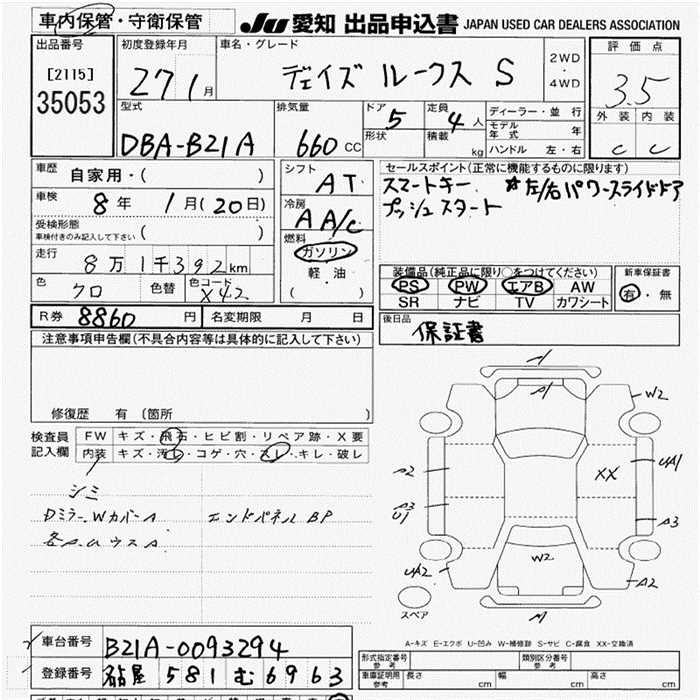 車内保管・守衛保管
JU 愛知 出品申込書 JAPAN USED CAR DEALERS ASSOCIATION
出品番号
[2115]
35053
初度登録年月
27 1月
車名・グレード
デイズ ルークス S
2WD
・
4WD
評価点
3.5
外装 内装
C C
型式
DBA-B21A
排気量
660 CC
ドア 5
形状
定員 4人
積載 kg
ディーラー・並行
モデル年式 年
ハンドル 左・右
車歴
自家用・( )
車検
8年 1月(20日)
受検形態
車検付きのみ記入して下さい ( )
走行
8万1千392km
色
クロ
色替
色コード
X42
シフト
AT
冷房
A A/C
燃料
ガソリン
軽・油
( )
セールスポイント(正常に機能するものに限ります)
スマートキー ☆左/右パワースライドドア
プッシュスタート
装備品(純正品に限り○をつけてください)
PS PW エアB AW
SR ナビ TV カワシート
新車保証書
有・無
R券 8860円
名変期限 月 日
後日品
保証書
注意事項申告欄(不具合内容等は具体的に記入して下さい)
修復歴 有 (箇所 )
検査員記入欄
FW キズ・飛石・ヒビ割・リペア跡・X要
内装 キズ・汚れ・コゲ・穴・スレ・キレ・破レ
シミ
DミラーWカバーA エンドパネルBP
A1
W2
A2
UA1
XX
A3
U1
A3
UA2
W2
A2
スペア
A-キズ E-エクボ U-凹み W-補修跡 S-サビ C-腐食 XX-交換済
車台番号 B21A-0093294
登録番号 名古屋 581 む 6963
形式指定番号 参考
類別区分番号 参考
車庫証明用 参考 長さ cm 幅 cm 高さ cm